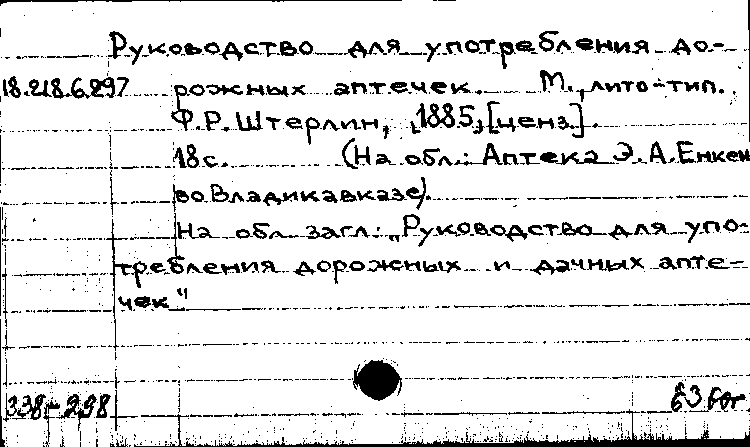 Руководство для употребления до-
18.218.6.297 рожных аптечек. М., лито-тип.
Ф.Р. Штерлин, 1885, [ценз.].
18 с. (На обл.: Аптека Э.А. Енкен
во Владикавказе).
На обл. загл.: „Руководство для упо-
требления дорожных и дачных апте-
чек"
338-298